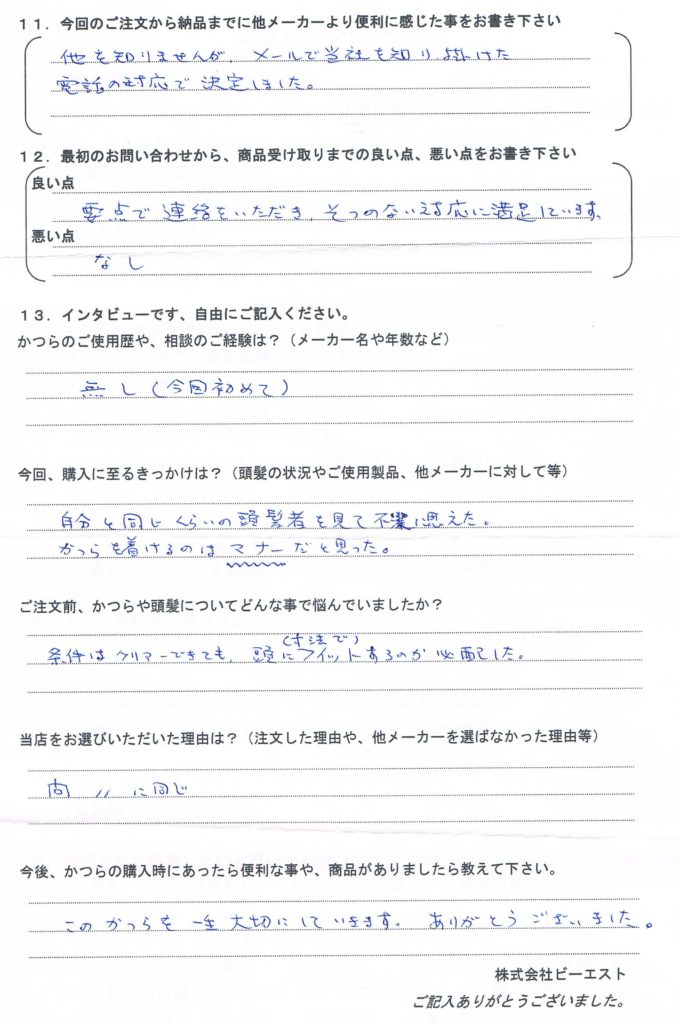 １１．今回のご注文から納品までに他メーカーより便利に感じた事をお書き下さい
他を知りませんが、メールで当社を知り掛けた
電話の対応で決定しました。
１２．最初のお問い合わせから、商品受け取りまでの良い点、悪い点をお書き下さい
良い点
要点で連絡をいただき、そつのない対応に満足しています。
悪い点
なし
１３．インタビューです、自由にご記入ください。
かつらのご使用歴や、相談のご経験は？（メーカー名や年数など）
無し（今回初めて）
今回、購入に至るきっかけは？（頭髪の状況やご使用製品、他メーカーに対して等）
自分と同じくらいの頭髪者を見て不潔に思えた。
かつらを着けるのはマナーだと思った。
ご注文前、かつらや頭髪についてどんな事で悩んでいましたか？
（寸法で）
条件はクリアーできても、頭にフィットするのか心配した。
当店をお選びいただいた理由は？（注文した理由や、他メーカーを選ばなかった理由等）
問 〃 に同じ
今後、かつらの購入時にあったら便利な事や、商品がありましたら教えて下さい。
このかつらを一生大切にしていきます。ありがとうございました。
株式会社ビーエスト
ご記入ありがとうございました。